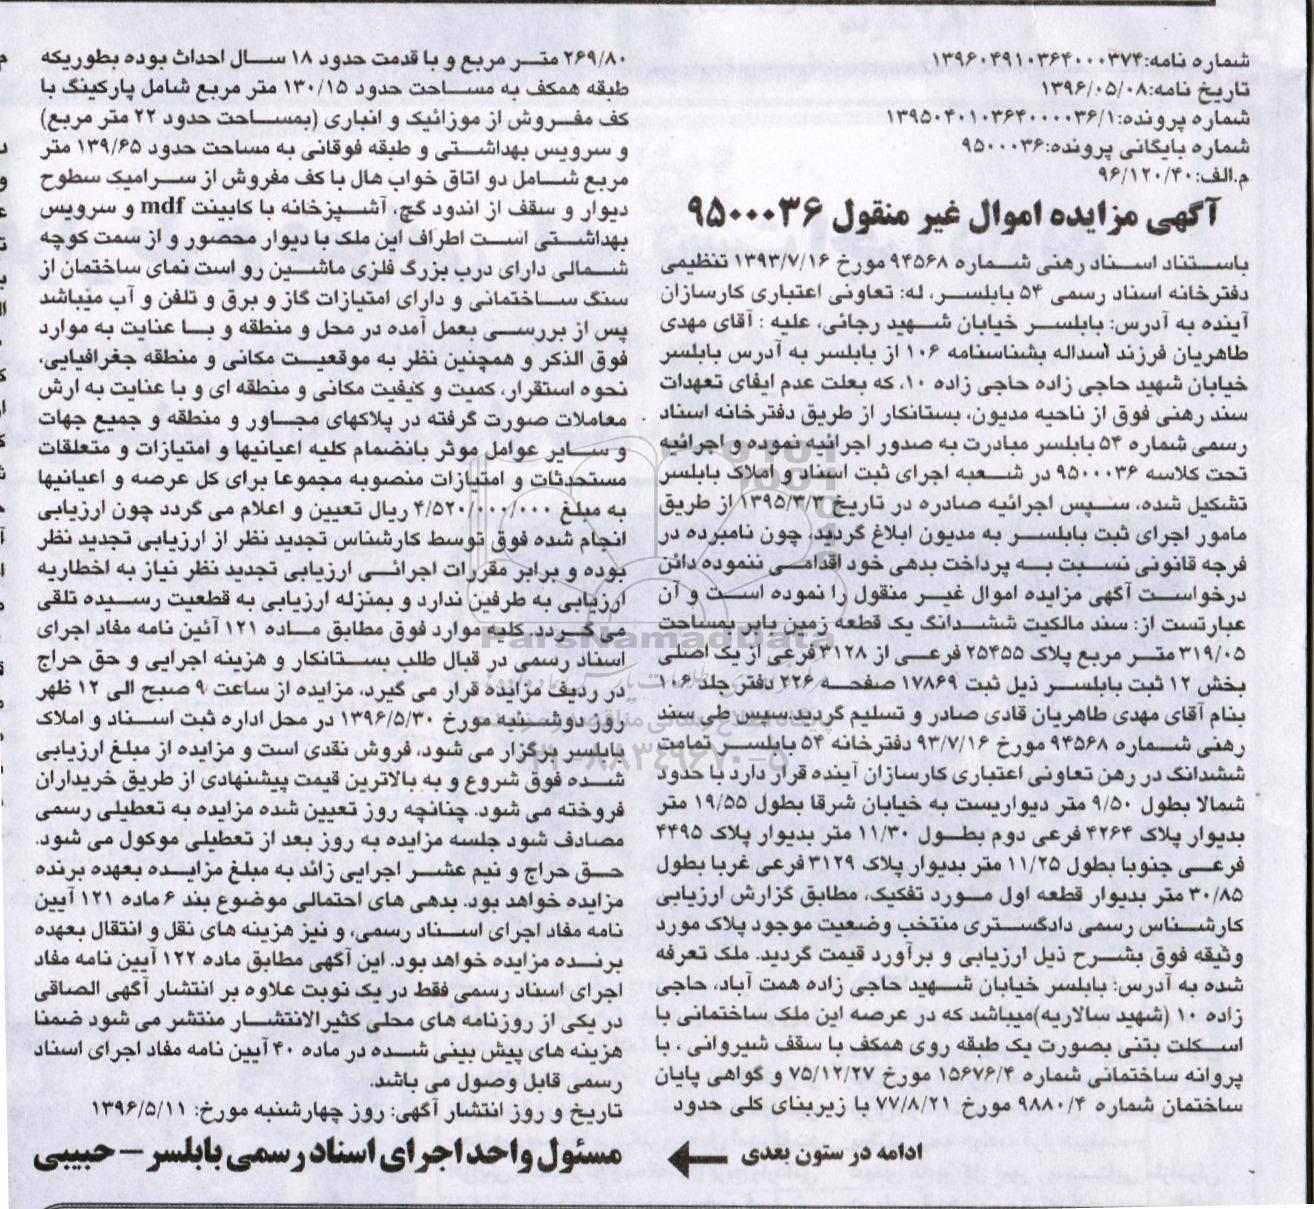 شماره نامه:۱۳۹۶۰۴۹۱۰۳۶۴۰۰۰۳۷۴
تاریخ نامه:۱۳۹۶/۰۵/۰۸
شماره پرونده:۱۳۹۵۰۴۰۱۰۳۶۴۰۰۰۰۳۶/۱
شماره بایگانی پرونده:۹۵۰۰۰۳۶
م.الف:۹۶/۱۲۰/۴۰
آگهی مزایده اموال غیر منقول ۹۵۰۰۰۳۶
باستناد اسناد رهنی شماره ۹۴۵۶۸ مورخ ۱۳۹۳/۷/۱۶ تنظیمی
دفترخانه اسناد رسمی ۵۴ بابلسر، له: تعاونی اعتباری کارسازان
آینده به آدرس: بابلسر خیابان شهید رجائی، علیه : آقای مهدی
طاهریان فرزند اسداله بشناسنامه ۱۰۶ از بابلسر به آدرس بابلسر
خیابان شهید حاجی زاده حاجی زاده ۱۰، که بعلت عدم ایفای تعهدات
سند رهنی فوق از ناحیه مدیون، بستانکار از طریق دفترخانه اسناد
رسمی شماره ۵۴ بابلسر مبادرت به صدور اجرائیه نموده و اجرائیه
تحت کلاسه ۹۵۰۰۰۳۶ در شعبه اجرای ثبت اسناد و املاک بابلسر
تشکیل شده، سپس اجرائیه صادره در تاریخ ۱۳۹۵/۳/۳ از طریق
مامور اجرای ثبت بابلسر به مدیون ابلاغ گردید، چون نامبرده در
فرجه قانونی نسبت به پرداخت بدهی خود اقدامی ننموده دائن
درخواست آگهی مزایده اموال غیر منقول را نموده است و آن
عبارتست از: سند مالکیت ششدانگ یک قطعه زمین بایر بمساحت
۳۱۹/۰۵ متر مربع پلاک ۲۵۴۵۵ فرعی از ۳۱۲۸ فرعی از یک اصلی
بخش ۱۲ ثبت بابلسر ذیل ثبت ۱۷۸۶۹ صفحه ۲۲۶ دفتر جلد ۱۰۶
بنام آقای مهدی طاهریان قادی صادر و تسلیم گردید سپس طی سند
رهنی شماره ۹۴۵۶۸ مورخ ۹۳/۷/۱۶ دفترخانه ۵۴ بابلسر تمامت
ششدانگ در رهن تعاونی اعتباری کارسازان آینده قرار دارد با حدود
شمالا بطول ۹/۵۰ متر دیواریست به خیابان شرقا بطول ۱۹/۵۵ متر
بدیوار پلاک ۴۲۶۴ فرعی دوم بطول ۱۱/۳۰ متر بدیوار پلاک ۴۴۹۵
فرعی جنوبا بطول ۱۱/۲۵ متر بدیوار پلاک ۳۱۲۹ فرعی غربا بطول
۳۰/۸۵ متر بدیوار قطعه اول مورد تفکیک، مطابق گزارش ارزیابی
کارشناس رسمی دادگستری منتخب وضعیت موجود پلاک مورد
وثیقه فوق بشرح ذیل ارزیابی و برآورد قیمت گردید. ملک تعرفه
شده به آدرس: بابلسر خیابان شهید حاجی زاده همت آباد، حاجی
زاده ۱۰ (شهید سالاریه)میباشد که در عرصه این ملک ساختمانی با
اسکلت بتنی بصورت یک طبقه روی همکف با سقف شیروانی ، با
پروانه ساختمانی شماره ۱۵۶۷۶/۴ مورخ ۷۵/۱۲/۲۷ و گواهی پایان
ساختمان شماره ۹۸۸۰/۴ مورخ ۷۷/۸/۲۱ با زیربنای کلی حدود
ادامه در ستون بعدی
۲۶۹/۸۰ متر مربع و با قدمت حدود ۱۸ سال احداث بوده بطوریکه
طبقه همکف به مساحت حدود ۱۳۰/۱۵ متر مربع شامل پارکینگ با
کف مفروش از موزائیک و انباری (بمساحت حدود ۲۲ متر مربع)
و سرویس بهداشتی و طبقه فوقانی به مساحت حدود ۱۳۹/۶۵ متر
مربع شامل دو اتاق خواب هال با کف مفروش از سرامیک سطوح
دیوار و سقف از اندود گچ، آشپزخانه با کابینت mdf و سرویس
بهداشتی است اطراف این ملک با دیوار محصور و از سمت کوچه
شمالی دارای درب بزرگ فلزی ماشین رو است نمای ساختمان از
سنگ ساختمانی و دارای امتیازات گاز و برق و تلفن و آب میباشد
پس از بررسی بعمل آمده در محل و منطقه و با عنایت به موارد
فوق الذکر و همچنین نظر به موقعیت مکانی و منطقه جغرافیایی،
نحوه استقرار، کمیت و کیفیت مکانی و منطقه ای و با عنایت به ارش
معاملات صورت گرفته در پلاکهای مجاور و منطقه و جمیع جهات
و سایر عوامل موثر بانضمام کلیه اعیانیها و امتیازات و متعلقات
مستحدثات و امتیازات منصوبه مجموعا برای کل عرصه و اعیانیها
به مبلغ ۴/۵۲۰/۰۰۰/۰۰۰ ریال تعیین و اعلام می گردد چون ارزیابی
انجام شده فوق توسط کارشناس تجدید نظر از ارزیابی تجدید نظر
بوده و برابر مقررات اجرائی ارزیابی تجدید نظر نیاز به اخطاریه
ارزیابی به طرفین ندارد و بمنزله ارزیابی به قطعیت رسیده تلقی
می گردید. کلیه موارد فوق مطابق ماده ۱۲۱ آئین نامه مفاد اجرای
اسناد رسمی در قبال طلب بستانکار و هزینه اجرایی و حق حراج
در ردیف مزایده قرار می گیرد، مزایده از ساعت ۹ صبح الی ۱۲ ظهر
روز دوشنبه مورخ ۱۳۹۶/۵/۳۰ در محل اداره ثبت اسناد و املاک
بابلسر برگزار می شود، فروش نقدی است و مزایده از مبلغ ارزیابی
شده فوق شروع و به بالاترین قیمت پیشنهادی از طریق خریداران
فروخته می شود. چنانچه روز تعیین شده مزایده به تعطیلی رسمی
مصادف شود جلسه مزایده به روز بعد از تعطیلی موکول می شود.
حق حراج و نیم عشر اجرایی زائد به مبلغ مزایده بعهده برنده
مزایده خواهد بود. بدهی های احتمالی موضوع بند ۶ ماده ۱۲۱ آیین
نامه مفاد اجرای اسناد رسمی، و نیز هزینه های نقل و انتقال بعهده
برنده مزایده خواهد بود. این آگهی مطابق ماده ۱۲۲ آیین نامه مفاد
اجرای اسناد رسمی فقط در یک نوبت علاوه بر انتشار آگهی الصاقی
در یکی از روزنامه های محلی کثیرالانتشار منتشر می شود ضمنا
هزینه های پیش بینی شده در ماده ۴۰ آیین نامه مفاد اجرای اسناد
رسمی قابل وصول می باشد.
تاریخ و روز انتشار آگهی: روز چهارشنبه مورخ: ۱۳۹۶/۵/۱۱
مسئول واحد اجرای اسناد رسمی بابلسر – حبیبی
ParsNamadData
۰۲۱-۸۸۳۴۹۶۷۰-۵